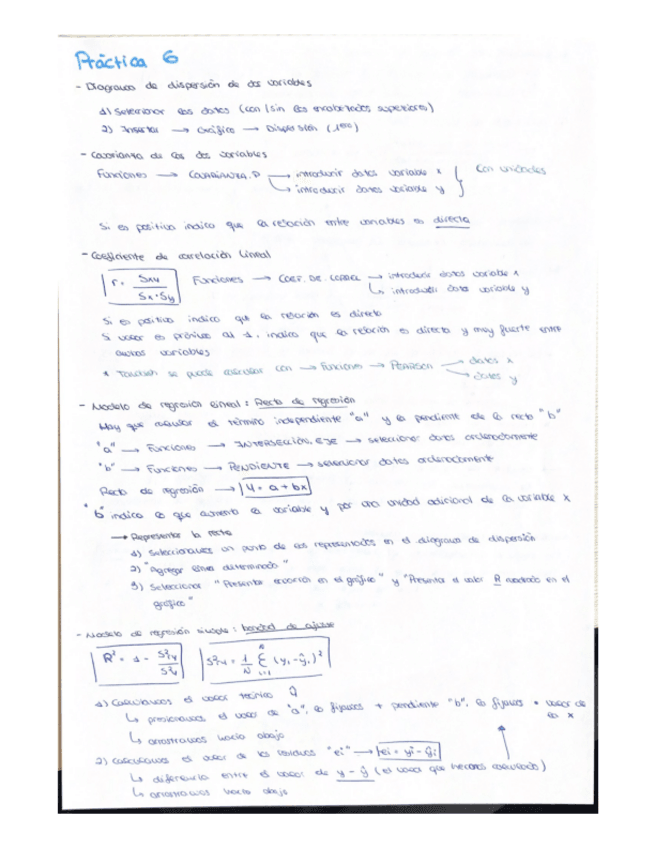 Práctica 6
- Diagrama de dispersión de dos variables
1) Seleccionar los datos (con/sin los encabezados superiores)
2) Insertar → Gráfico → Dispersión (1ero)
- Covarianza de las dos variables
Funciones → COVARIANZA.P → introducir datos variable x } Con unidades
↳ introducir datos variable y
Si es positivo indica que la relación entre variables es directa
- Coeficiente de correlación lineal
r = Sxy / Sx·Sy Funciones → COEF. DE. CORREL → introducir datos variable x
↳ introducir datos variable y
Si es positivo indica que la relación es directa
Si valor es próximo al 1, indica que la relación es directa y muy fuerte entre
ambas variables
* También se puede calcular con → Funciones → PEARSON → datos x
→ datos y
- Modelo de regresión lineal: Recta de regresión
Hay que calcular el término independiente "a" y la pendiente de la recta "b"
"a" → Funciones → INTERSECCIÓN.EJE → seleccionar datos ordenadamente
"b" → Funciones → PENDIENTE → seleccionar datos ordenadamente
Recta de regresión → Y = a + bx
"b" indica lo que aumenta la variable y por una unidad adicional de la variable x
→ Representar la recta
1) Seleccionamos un punto de los representados en el diagrama de dispersión
2) "Agregar línea determinado"
3) Seleccionar "Presentar ecuación en el gráfico" y "Presentar el valor R cuadrado en el
gráfico"
- Modelo de regresión simple: bondad de ajuste
R² = 1 - S²ry / S²y S²ry = 1/N Σ (yi - ŷi)²
1) Calculamos el valor teórico ŷ
↳ presionamos el valor de "a", lo fijamos + pendiente "b", lo fijamos * valor de
la x
↳ arrastramos hacia abajo
2) Calculamos el valor de los residuos "ei" → ei = yi - ŷi
↳ diferencia entre el valor de y - ŷ (el valor que hemos calculado)
↳ arrastramos hacia abajo